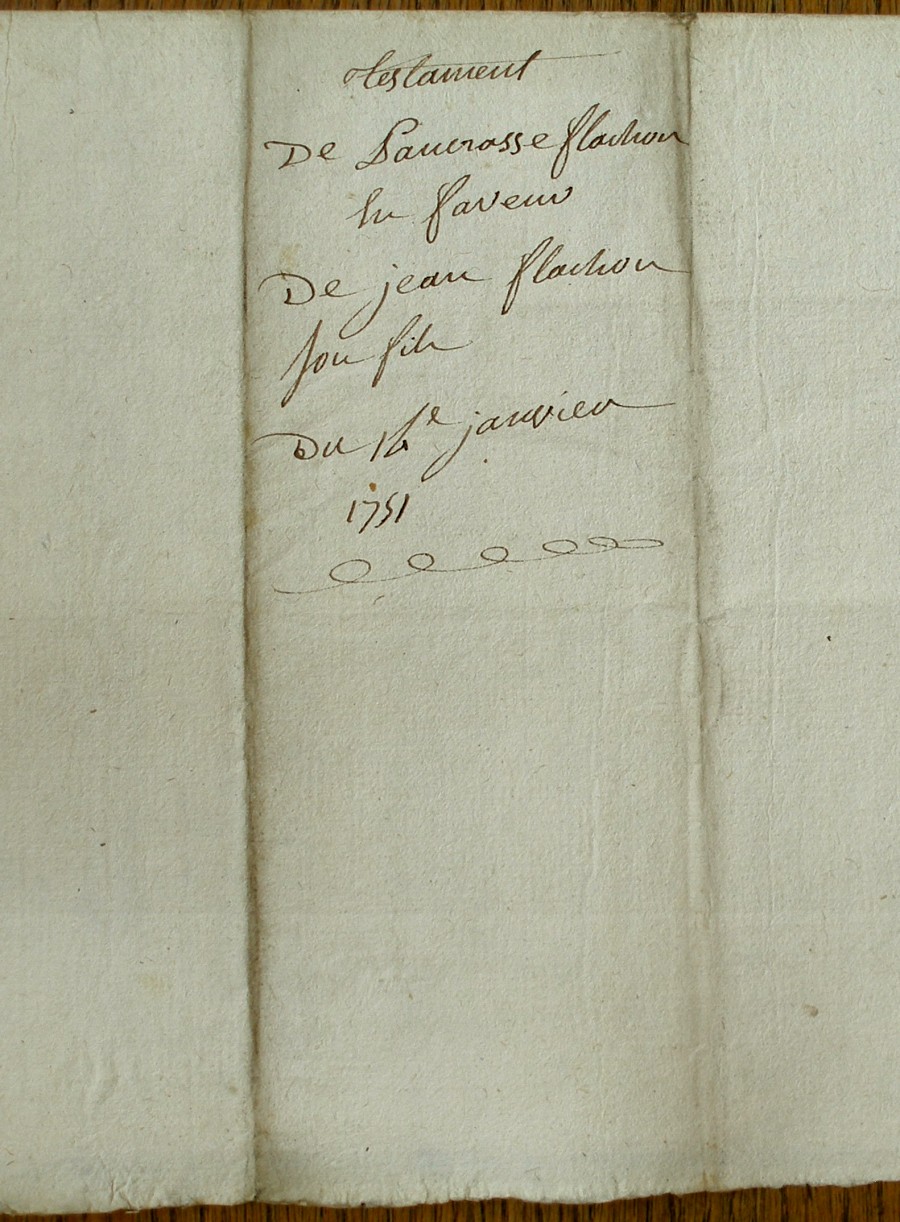 testament
De Pancrasse flachon
En faveur
De jean flachon
son fils
Du 16e janvier
1751